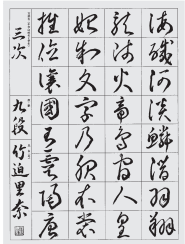 海鹹河淡鱗潛羽翔
龍師火帝鳥官人皇
始制文字乃服衣裳
推位讓國有虞陶唐
三次
九段 竹迫里奈